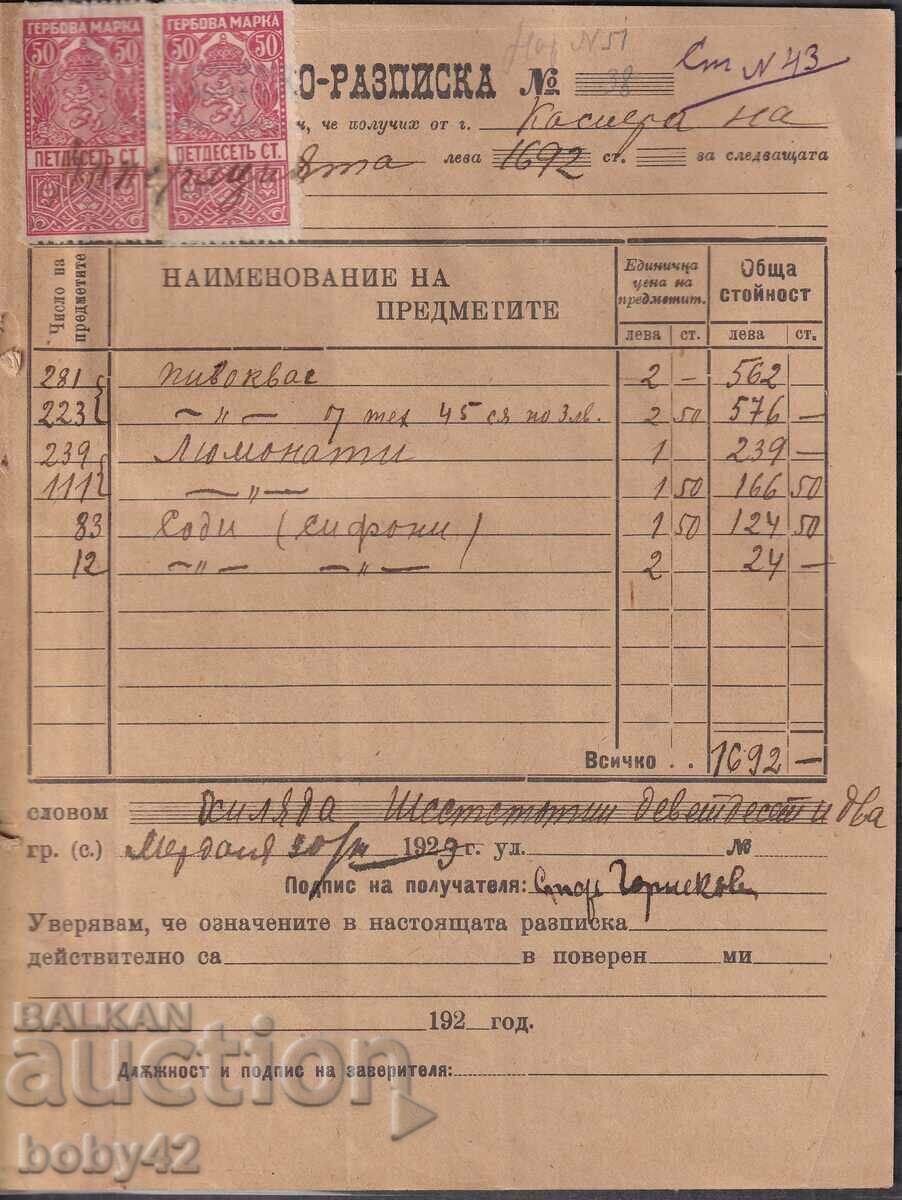 ГЕРБОВА МАРКА ГЕРБОВА МАРКА
50 50 50 50
ПЕТДЕСЕТЬ СТ. ПЕТДЕСЕТЬ СТ.
N 51
О-РАЗПИСКА № 38 Ст N 43
че получих от г. Касиера на
лева 1692 ст. за следващата
Число на предметите НАИМЕНОВАНИЕ НА ПРЕДМЕТИТЕ Единична цена на предметит. Обща стойност
лева ст. лева ст.
281 пивоквас 2 — 562
223 — „ — 45 ся по 3 лв. 2 50 576 —
239 Люмонати 1 239 —
111 — „ — 1 50 166 50
83 Соди (сифони) 1 50 124 50
12 — „ — — „ — 2 24 —
Всичко . . 1692 —
словом Хиляда Шестстотин деветдесет и два
гр. (с.) Мердания 1929 г. ул. №
Подпис на получателя:
Уверявам, че означените в настоящата разписка
действително са в поверен ми
192 год.
Длѫжност и подпис на заверителя:
BALKAN
auction
boby42